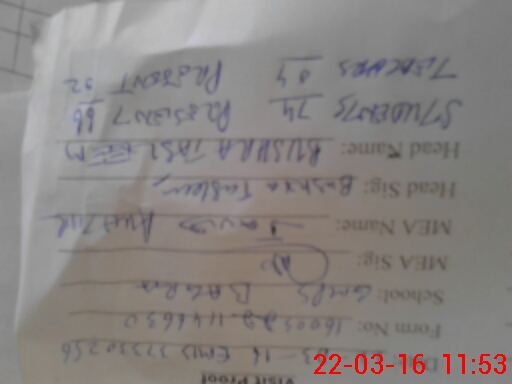 Visit Proof
3-16 EMIS 37330256
Form No:
School: GMPS
MEA Sig:
MEA Name:
Head Sig: Bushra Tasleem
Head Name: BUSHRA TASLEEM
STUDENTS 74 PRESENT 66
TEACHERS 04 PRESENT 02
22-03-16 11:53